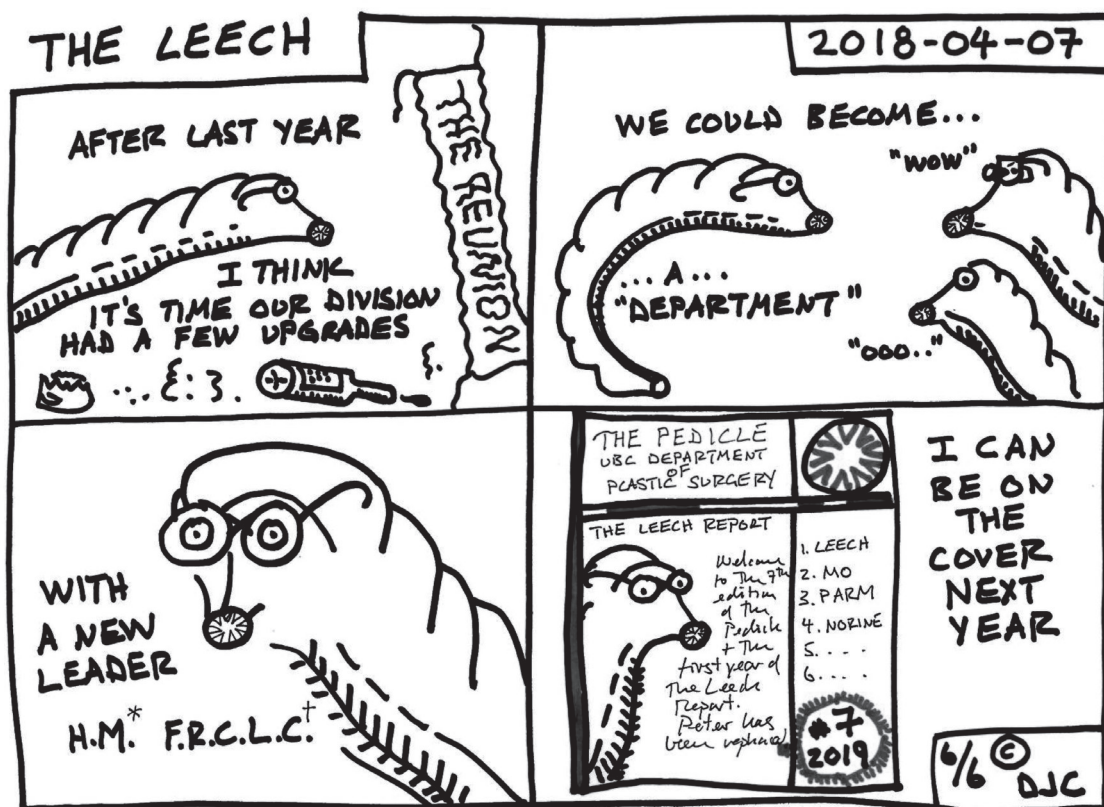 THE LEECH
2018-04-07
AFTER LAST YEAR
THE REUNION
I THINK
IT'S TIME OUR DIVISION
HAD A FEW UPGRADES
WE COULD BECOME...
"WOW"
...A...
"DEPARTMENT"
"OOO.."
WITH
A NEW
LEADER
H.M.* F.R.C.L.C.†
THE PEDICLE
UBC DEPARTMENT
OF
PLASTIC SURGERY
THE LEECH REPORT
Welcome
to The 7th
edition
of the
Pedicle
+ The
first year of
The Leech
Report.
Peter has
been replaced
1. LEECH
2. MO
3. PARM
4. NORINE
5. ....
6. ....
#7
2019
I CAN
BE ON
THE
COVER
NEXT
YEAR
6/6 © DJC